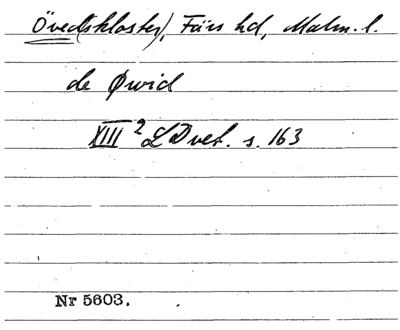 Öved(skloster), Färs hd, Malm. l.
de Øwid
XIII² LDvet. s. 163
Nr 5603.